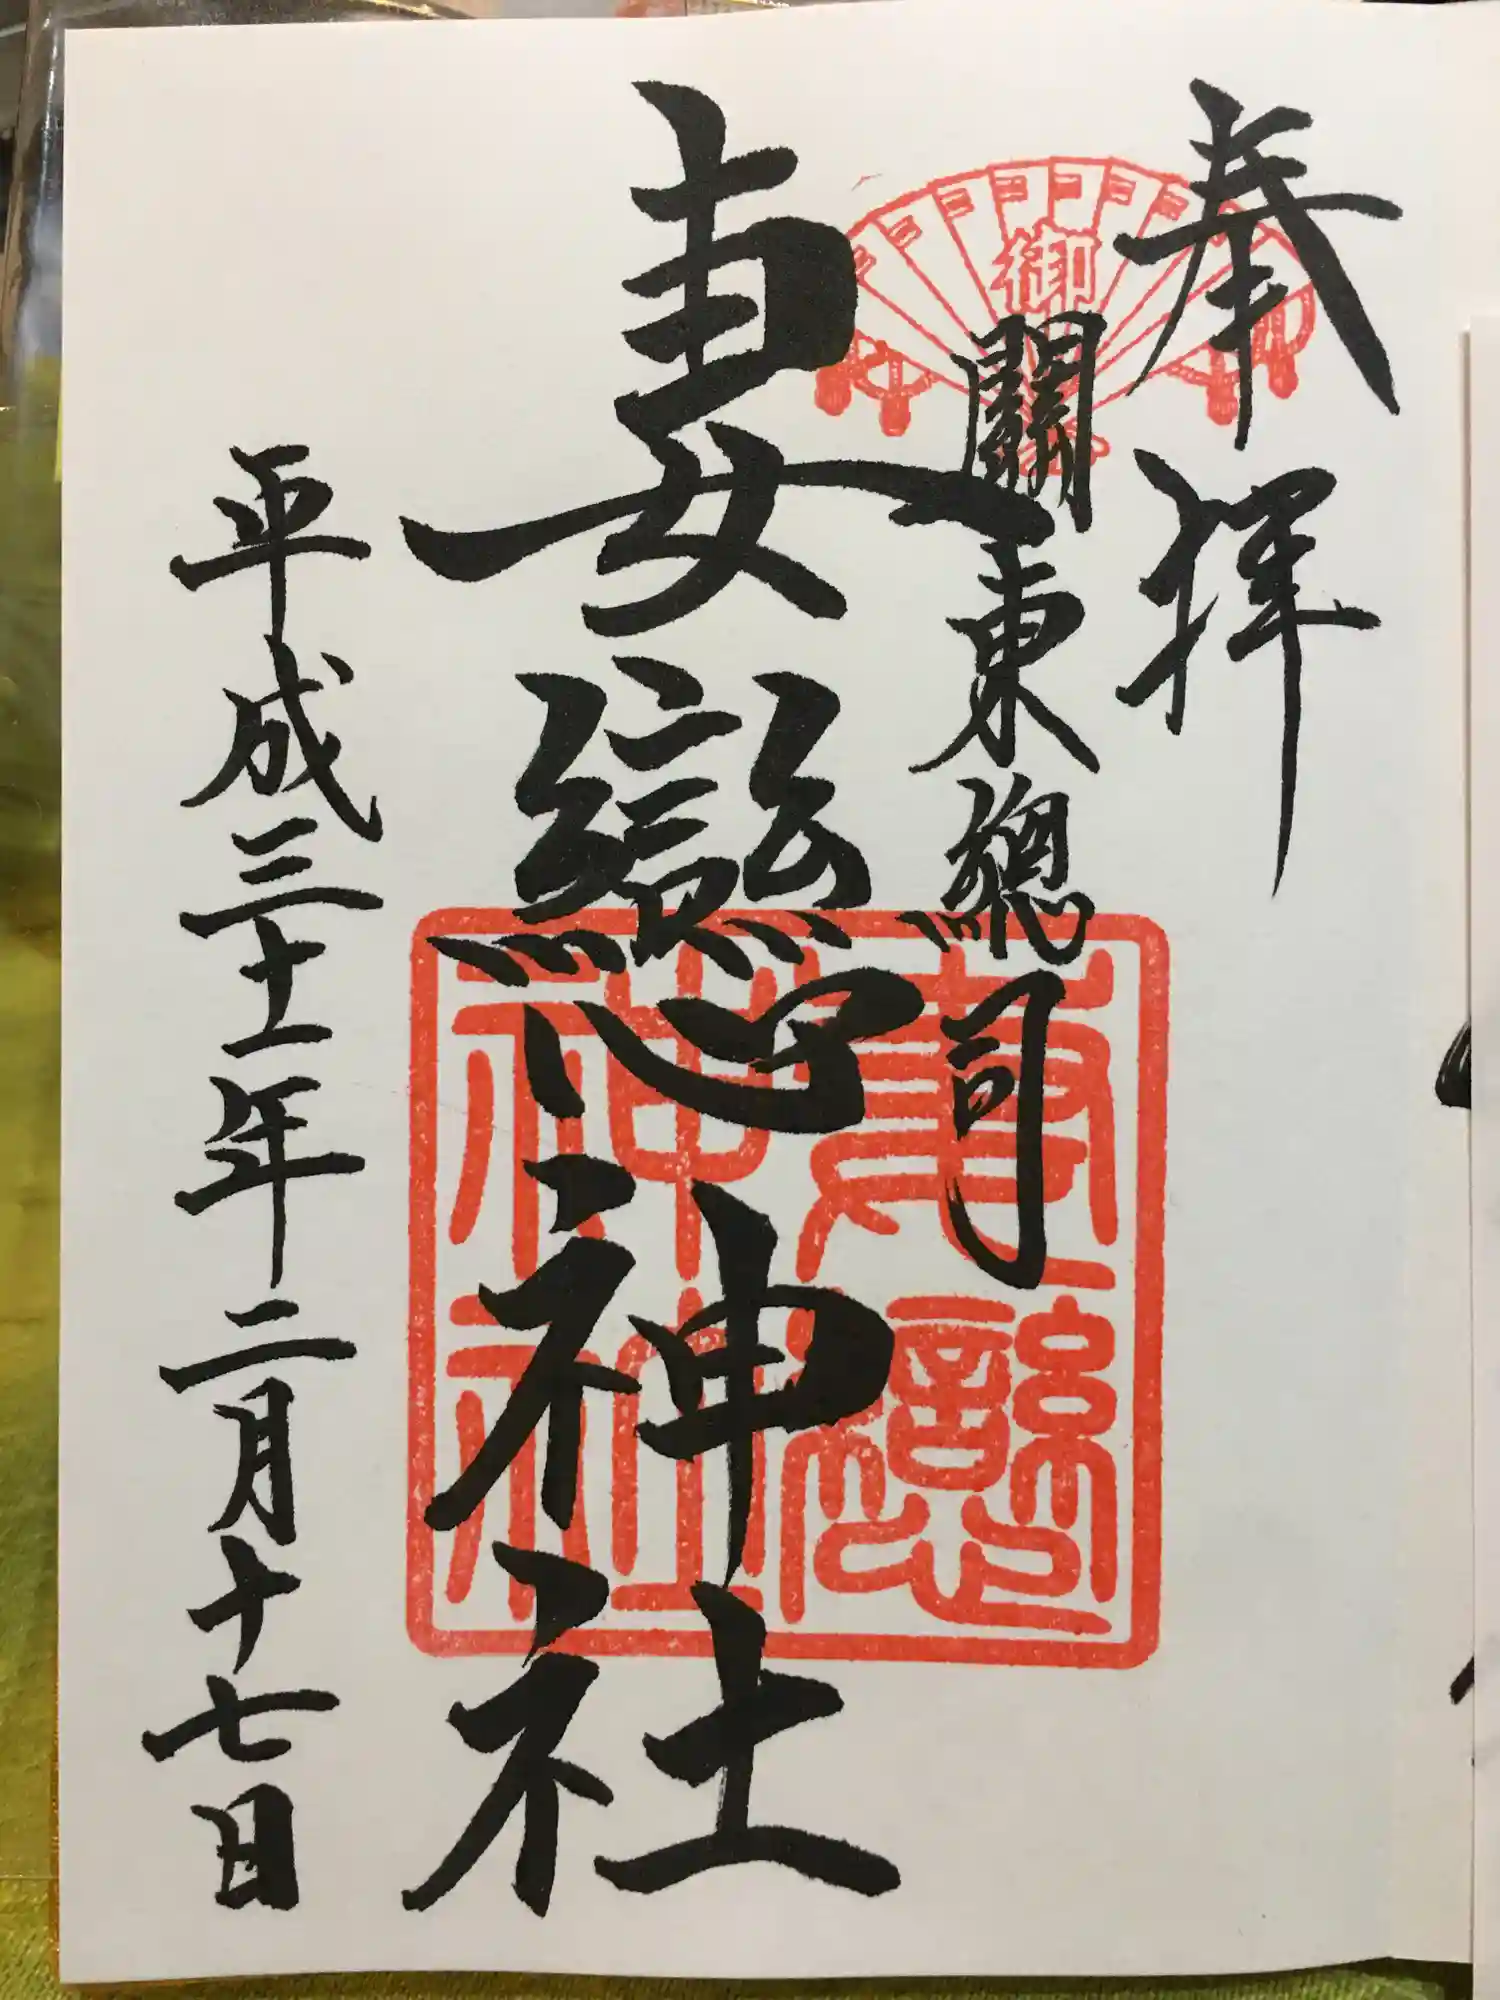 奉拝
御
關東總司
妻戀神社
妻戀神社
平成三十一年二月十七日